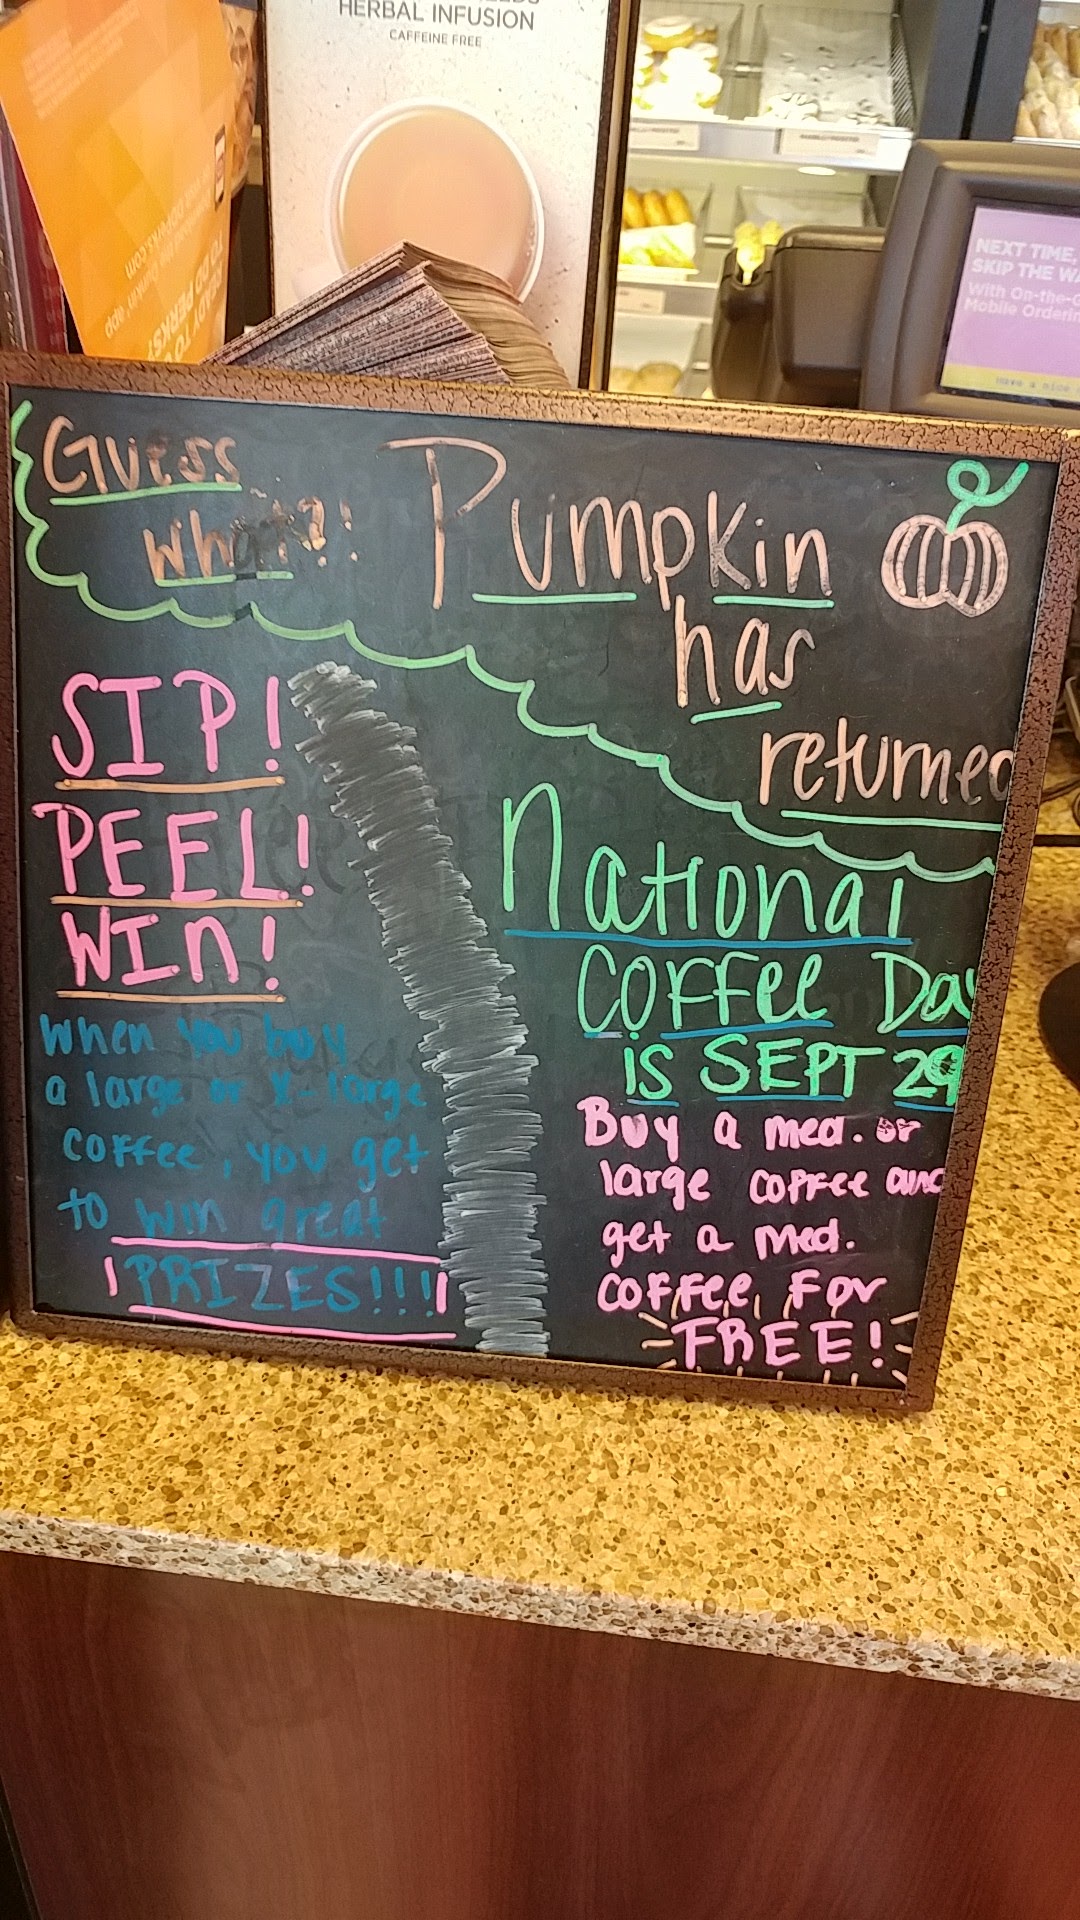 HERBAL INFUSION
CAFFEINE FREE
NEXT TIME,
SKIP THE WA
With On-the-G
Mobile Orderin
Have a nice
READY TO
GO PERKS?
Guess
what?!
Pumpkin
has
returned
SIP!
PEEL!
WIn!
when you buy
a large or X-large
coffee, you get
to win great
PRIZES!!!!
National
Coffee Day
is SEPT 29
Buy a med. or
large coffee and
get a med.
coffee for
FREE!